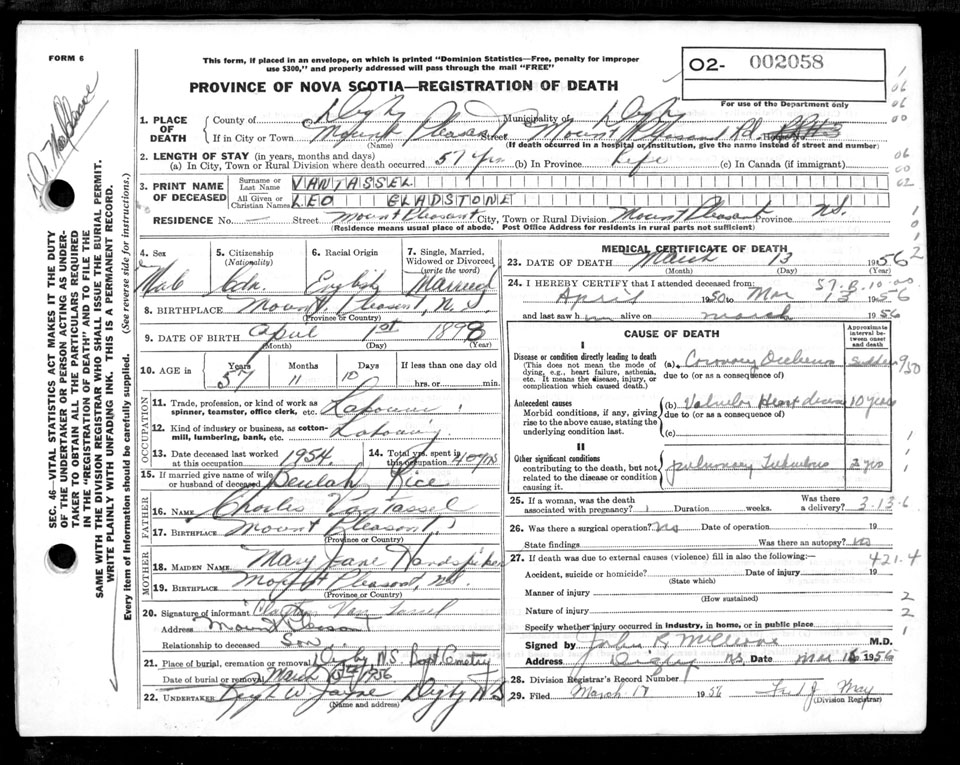 FORM 6
This form, if placed in an envelope, on which is printed "Dominion Statistics—Free, penalty for improper
use $300," and properly addressed will pass through the mail "FREE"
O2- 002058
For use of the Department only
PROVINCE OF NOVA SCOTIA—REGISTRATION OF DEATH
1. PLACE OF DEATH
County of Digby Municipality of Digby
If in City or Town Mount Pleasant Street Mount Pleasant Rd. House No.
(Name) (If death occurred in a hospital or institution, give the name instead of street and number)
2. LENGTH OF STAY (in years, months and days)
(a) In City, Town or Rural Division where death occurred 57 yrs (b) In Province Life (c) In Canada (if immigrant)
3. PRINT NAME OF DECEASED
Surname or Last Name VANTASSEL
All Given or Christian Names LEO GLADSTONE
RESIDENCE No. — Street Mount Pleasant City, Town or Rural Division Mount Pleasant Province N.S.
(Residence means usual place of abode. Post Office Address for residents in rural parts not sufficient)
4. Sex 5. Citizenship (Nationality) 6. Racial Origin 7. Single, Married, Widowed or Divorced (write the word)
Male Cdn. English Married
8. BIRTHPLACE Mount Pleasant, N.S.
(Province or Country)
9. DATE OF BIRTH April 1st 1898
(Month) (Day) (Year)
10. AGE in Years Months Days If less than one day old
57 11 hrs. or min.
OCCUPATION
11. Trade, profession, or kind of work as spinner, teamster, office clerk, etc.
12. Kind of industry or business, as cotton-mill, lumbering, bank, etc.
13. Date deceased last worked at this occupation 1954 14. Total yrs. spent in this occupation 40 yrs
15. If married give name of wife or husband of deceased Beulah Rice
FATHER
16. NAME Charles Van Tassel
17. BIRTHPLACE Mount Pleasant
(Province or Country)
MOTHER
18. MAIDEN NAME Mary Jane Handspiker
19. BIRTHPLACE Mount Pleasant, N.S.
(Province or Country)
20. Signature of informant Van Tassel
Address Mount Pleasant
Relationship to deceased Son
21. Place of burial, cremation or removal Digby N.S Bapt Cemetry
Date of burial or removal March 1956
22. UNDERTAKER W. Jayne Digby N.S
(Name and address)
MEDICAL CERTIFICATE OF DEATH
23. DATE OF DEATH March 13 1956
(Month) (Day) (Year)
24. I HEREBY CERTIFY that I attended deceased from:
April 1950 to Mar 13 1956
and last saw him alive on march 1956
CAUSE OF DEATH
Approximate interval between onset and death
I
Disease or condition directly leading to death
(This does not mean the mode of dying, e.g., heart failure, asthenia, etc. It means the disease, injury, or complication which caused death.)
(a) Coronary Occlusion sudden
due to (or as a consequence of)
Antecedent causes
Morbid conditions, if any, giving rise to the above cause, stating the underlying condition last.
(b) Valvular Heart disease 10 years
due to (or as a consequence of)
(c)
II
Other significant conditions
contributing to the death, but not related to the disease or condition causing it.
pulmonary Tuberculosis yrs
25. If a woman, was the death associated with pregnancy? Duration weks. Was there a delivery? 3-13-6
26. Was there a surgical operation? No Date of operation 19
State findings Was there an autopsy? No
27. If death was due to external causes (violence) fill in also the following:— 421.4
Accident, suicide or homicide? Date of injury 19
(State which)
Manner of injury
(How sustained)
Nature of injury
Specify whether injury occurred in industry, in home, or in public place
Signed by John R McCleave M.D.
Address Digby NS Date Mar 1956
28. Division Registrar's Record Number
29. Filed March 17 1956 Fred J May
(Division Registrar)
SEC. 46—VITAL STATISTICS ACT MAKES IT THE DUTY
OF THE UNDERTAKER OR PERSON ACTING AS UNDER-
TAKER TO OBTAIN ALL THE PARTICULARS REQUIRED
IN THE "REGISTRATION OF DEATH" AND TO FILE THE
SAME WITH THE DIVISION REGISTRAR WHO SHALL ISSUE THE BURIAL PERMIT.
WRITE PLAINLY WITH UNFADING INK. THIS IS A PERMANENT RECORD.
Every item of information should be carefully supplied. (See reverse side for instructions.)